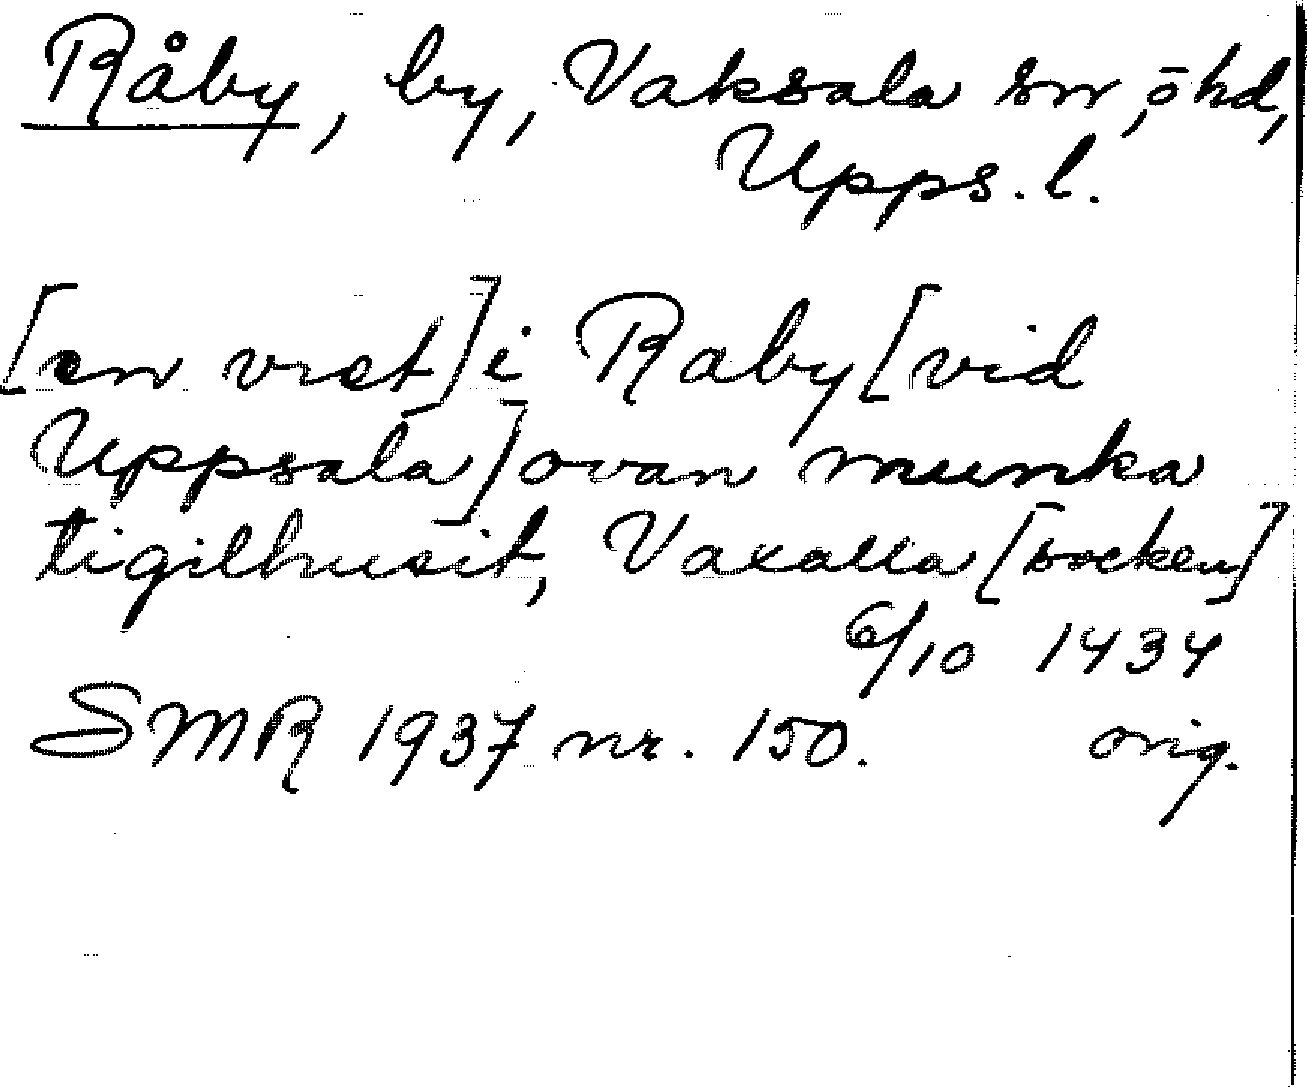 Råby, by, Vaksala sn, ōhd,
Upps. l.
[en vret] i Raby [vid
Uppsala] ovan munka
tigilhusit, Vaxalla [socken]
6/10 1434
SMR 1937 nr. 150. orig.